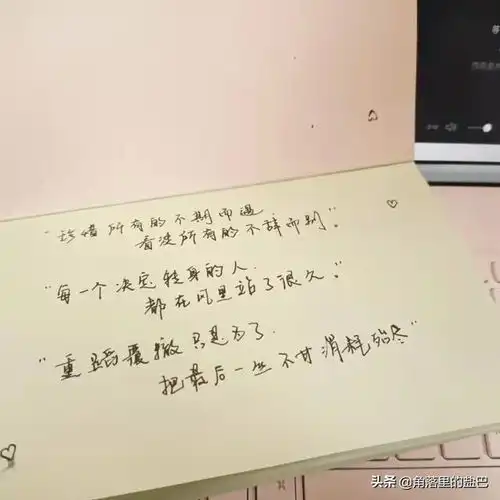 "珍惜所有的不期而遇
看淡所有的不辞而别。"
"每一个决定转身的人.
都在风里站了很久。"
"重蹈覆辙只是为了.
把最后一丝不甘消耗殆尽"
头条 @角落里的盐巴